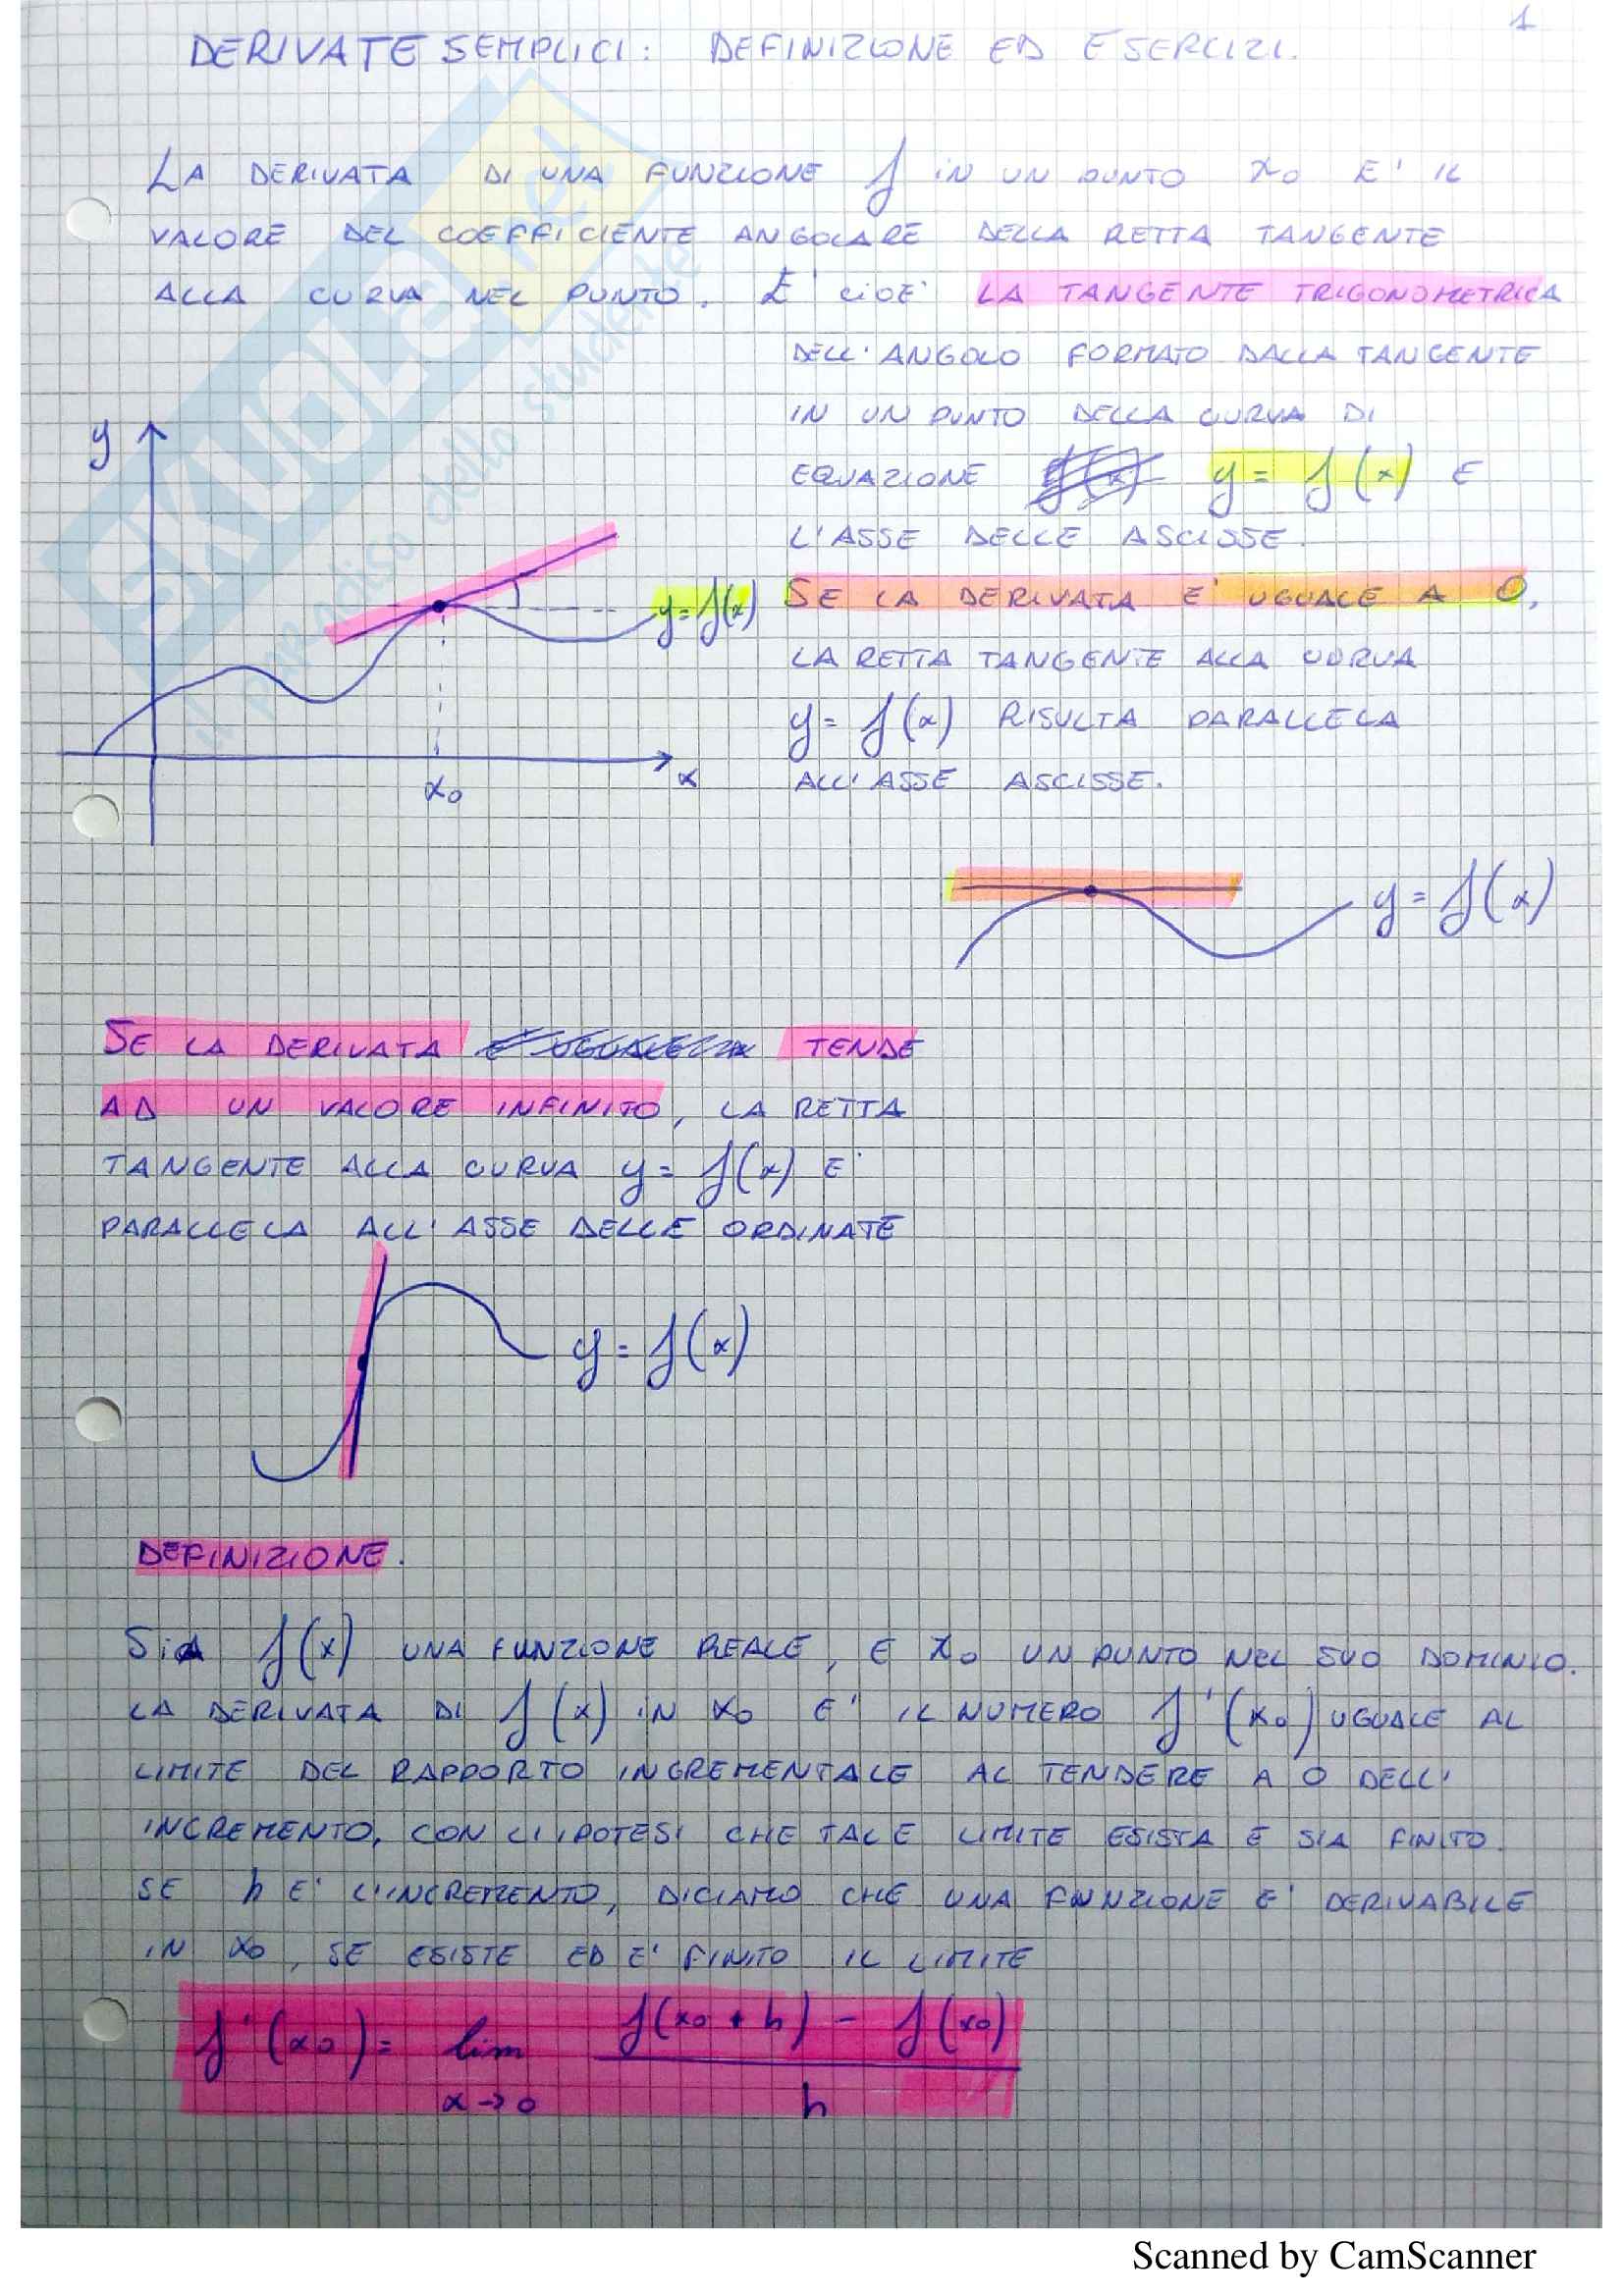 1
DERIVATE SEMPLICI: DEFINIZIONE ED ESERCIZI.
LA DERIVATA DI UNA FUNZIONE f IN UN PUNTO x₀ E' IL
VALORE DEL COEFFICIENTE ANGOLARE DELLA RETTA TANGENTE
ALLA CURVA NEL PUNTO. E' CIOE' LA TANGENTE TRIGONOMETRICA
DELL'ANGOLO FORMATO DALLA TANGENTE
IN UN PUNTO DELLA CURVA DI
EQUAZIONE y = f(x) E
L'ASSE DELLE ASCISSE.
SE LA DERIVATA E' UGUALE A 0,
LA RETTA TANGENTE ALLA CURVA
y = f(x) RISULTA PARALLELA
ALL'ASSE ASCISSE.
y
y = f(x)
x₀
x
y = f(x)
SE LA DERIVATA TENDE
AD UN VALORE INFINITO, LA RETTA
TANGENTE ALLA CURVA y = f(x) E'
PARALLELA ALL'ASSE DELLE ORDINATE
y = f(x)
DEFINIZIONE.
SIA f(x) UNA FUNZIONE REALE, E x₀ UN PUNTO NEL SUO DOMINIO.
LA DERIVATA DI f(x) IN x₀ E' IL NUMERO f'(x₀) UGUALE AL
LIMITE DEL RAPPORTO INCREMENTALE AL TENDERE A 0 DELL'
INCREMENTO, CON L'IPOTESI CHE TALE LIMITE ESISTA E SIA FINITO.
SE h E' L'INCREMENTO, DICIAMO CHE UNA FUNZIONE E' DERIVABILE
IN x₀, SE ESISTE ED E' FINITO IL LIMITE
f'(x₀) = lim f(x₀ + h) - f(x₀)
x → 0 h
SKUOLA.net
il paradiso dello studente
Scanned by CamScanner